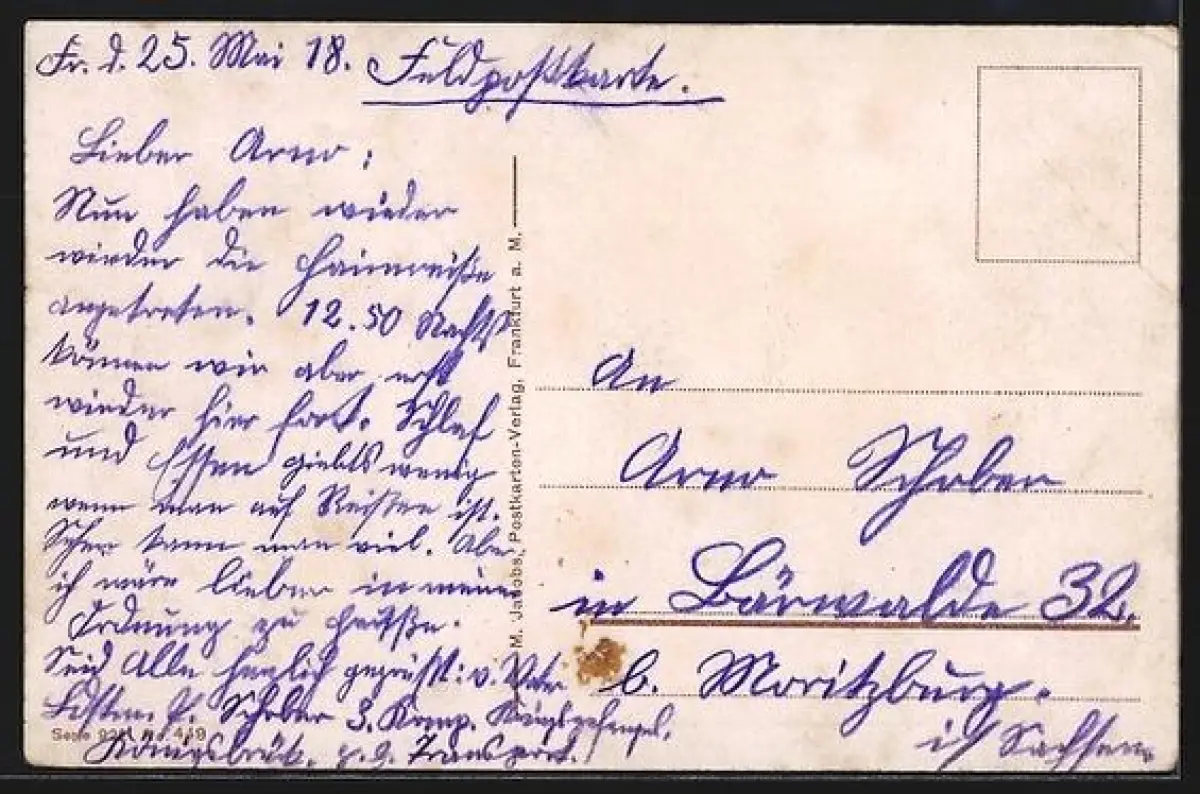 Fr. d. 25. Mai 18. Feldpostkarte.
Lieber Arno:
Nun haben wieder
wieder die Haimreiße
angetreten. 12.50 Nachts
können wir aber erst
wieder hier fort. Schlaf
und Essen giebts wenig
wenn man auf Reißen ist.
Sehen kann man viel. Aber
ich wäre lieber in meiner
Ordnung zu Hauße.
Seid Alle herzlich gegrüßt: v. Vater
P. Schober 3. Komp.
Königsbrück. z. Z. Transport.
Serie No 419
M. Jacobs, Postkarten-Verlag, Frankfurt a. M.
An
Arno Schober
in Bärwalde 32.
b. Moritzburg.
in Sachsen.